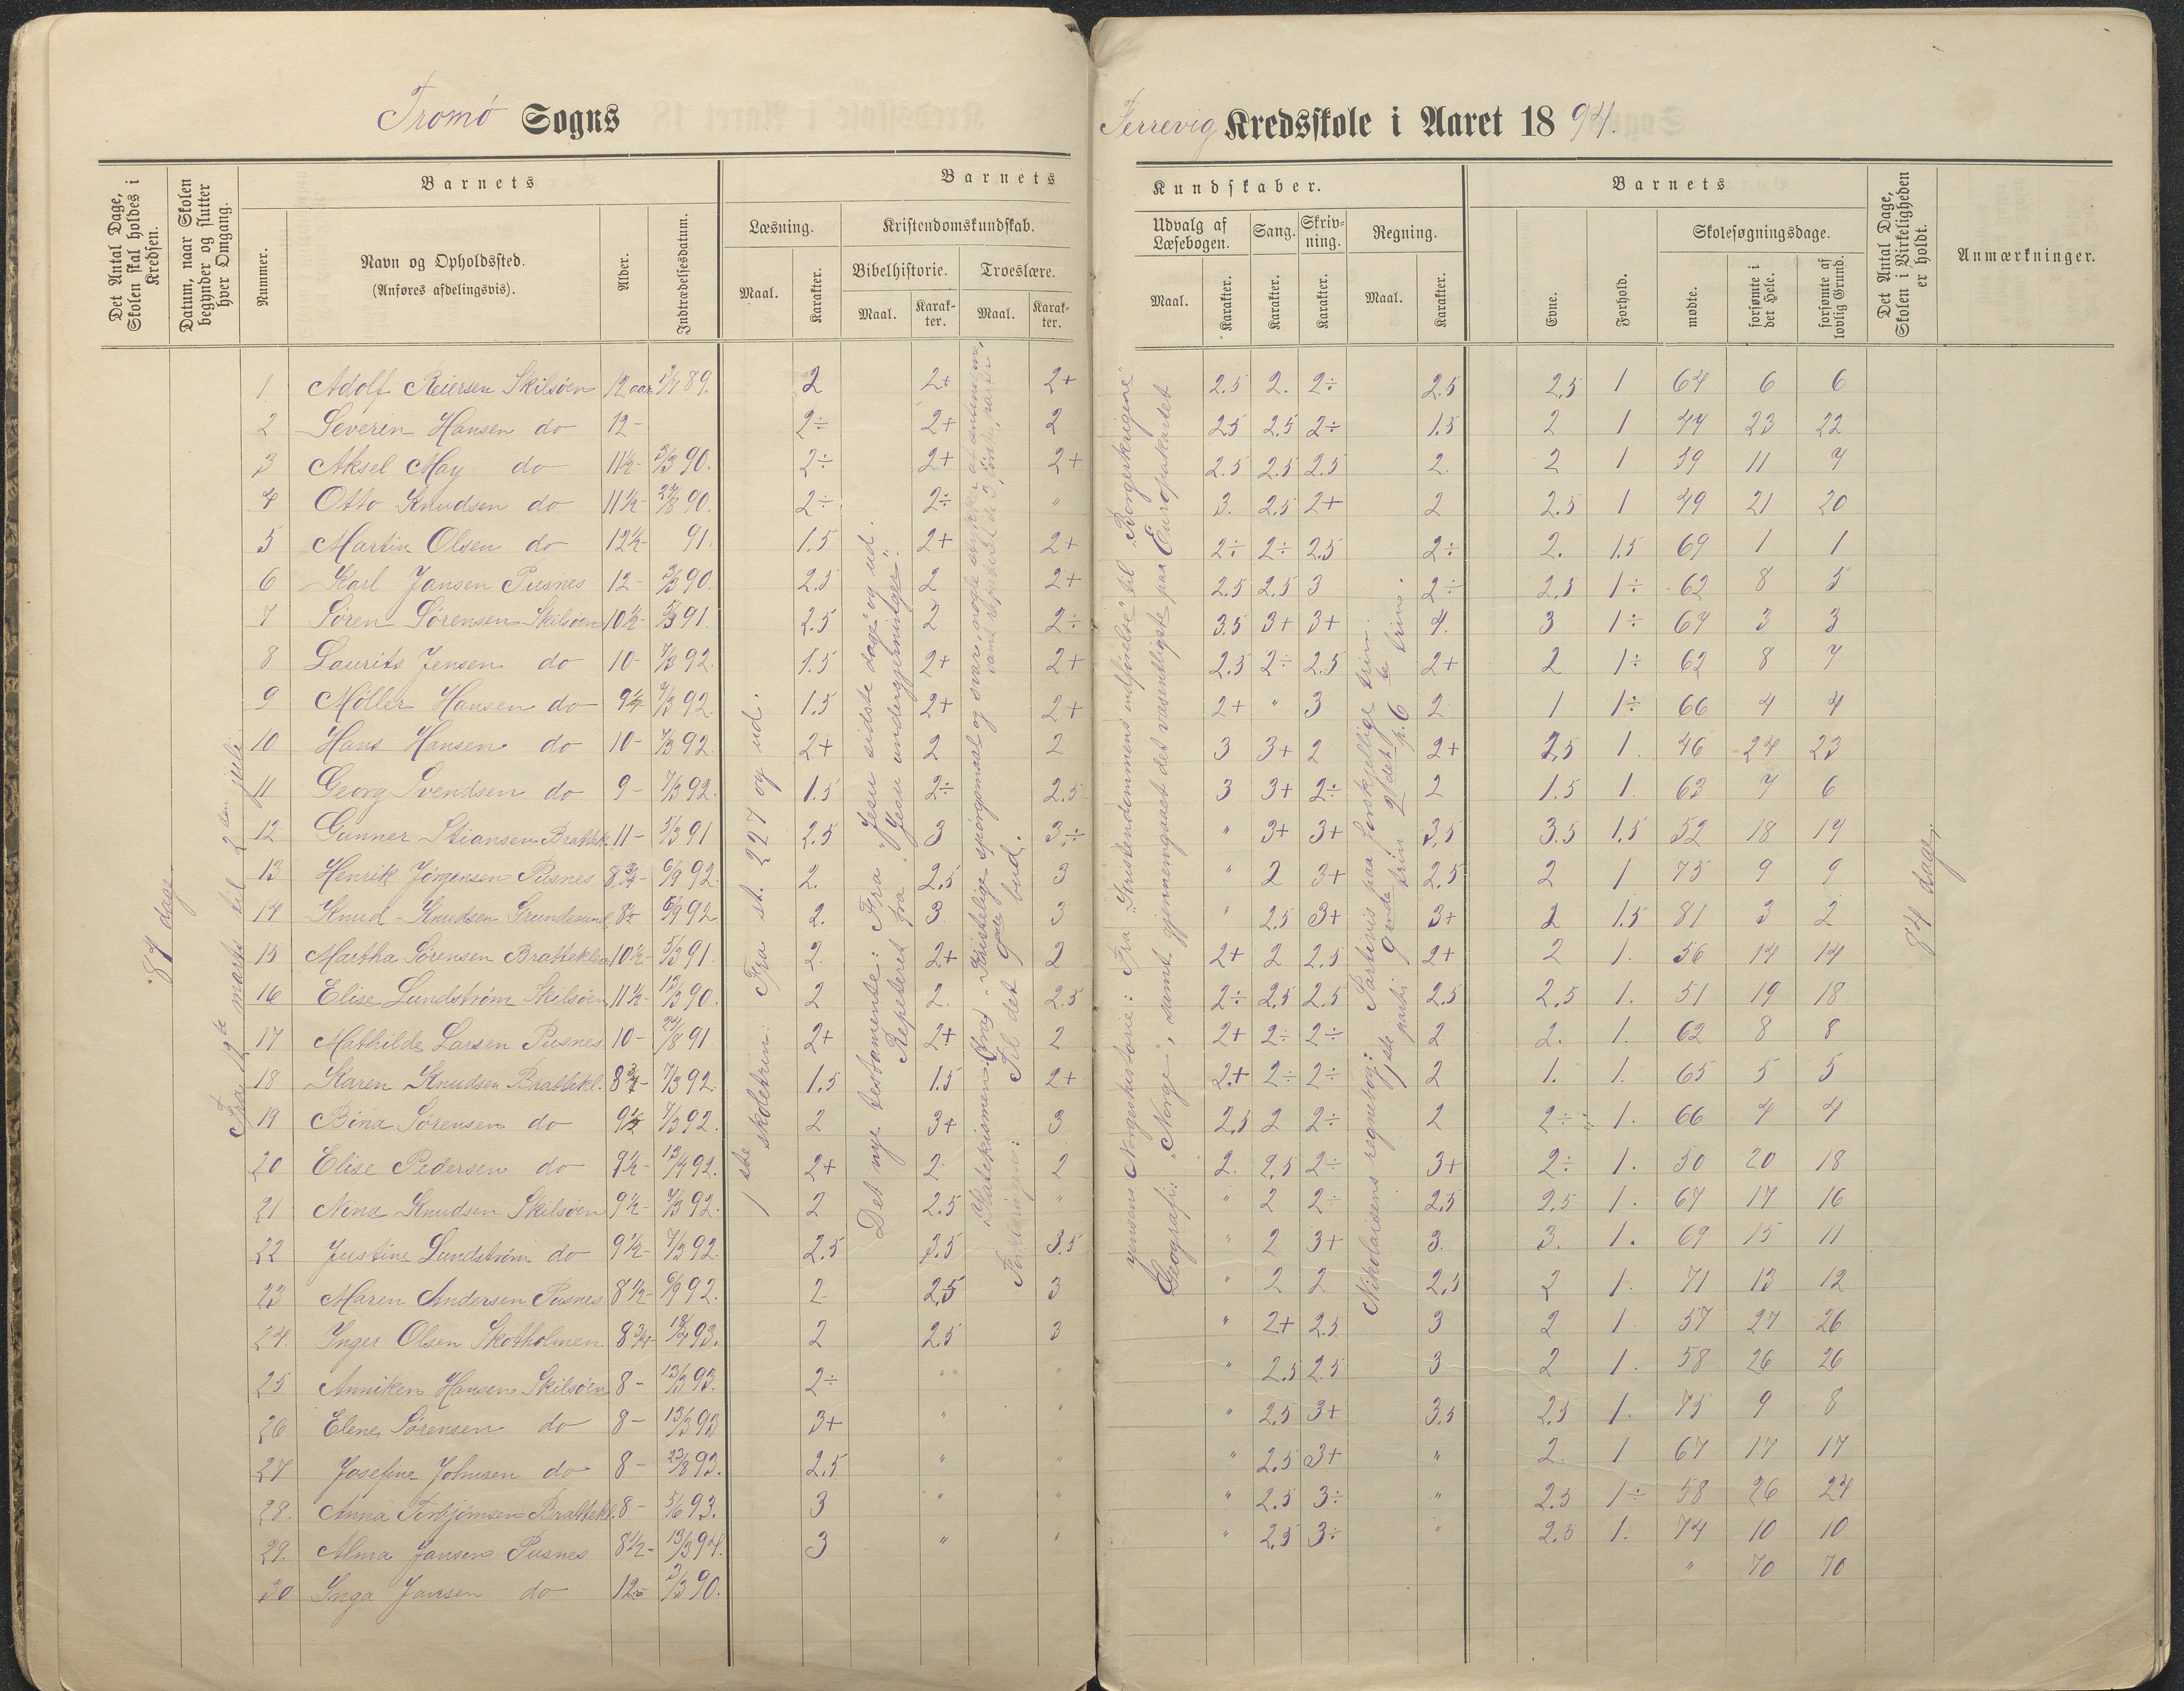 Tromö Sogns
Terrevig Kredsskole i Aaret 1894.
Det Antal Dage, Skolen skal holdes i Kredsen.
Datum, naar Skolen begynder og slutter hver Omgang.
Barnets
Nummer.
Navn og Opholdssted.
(Anføres afdelingsvis).
Alder.
Indtrædelsesdatum.
Barnets
Læsning.
Maal.
Karakter.
Kristendomskundskab.
Bibelhistorie.
Maal.
Karakter.
Troeslære.
Maal.
Karakter.
Kundskaber.
Udvalg af Læsebogen.
Maal.
Karakter.
Sang.
Karakter.
Skrivning.
Karakter.
Regning.
Maal.
Karakter.
Barnets
Evne.
Forhold.
Skolesøgningsdage.
mødte.
forsømte i det Hele.
forsømte af lovlig Grund.
Det Antal Dage, Skolen i Virkeligheden er holdt.
Anmærkninger.
84 dage
Fra 12te marts til 2den juli
1ste skoletrin: Fra st. 227 og ud.
Det nye testamente: Fra "Jesu sidste dage" og ud.
Repeteret fra "Jesu undergjerninger".
Til det 9nde bud.
Geografi: "Norge", samt gjennemgaaet det væsentligste paa Europakartet
1ste parti 9nde trin 2det p. 6te trin.
84 dage.
1 Adolf Reiersen Skilsöen 12 aar 89. 2 2+ 2+ 2.5 2. 2÷ 2.5 2.5 1 64 6 6
2 Severin Hansen do 12- 2÷ 2+ 2 2.5 2.5 2÷ 1.5 2 1 44 23 22
3 Aksel May do 11½- 3/3 90. 2÷ 2+ 2+ 2.5 2.5 2.5 2. 2 1 59 11 7
4 Otto Knudsen do 11½- 27/8 90. 2÷ 2÷ " 3. 2.5 2+ 2 2.5 1 49 21 20
5 Martin Olsen do 12½- 91. 1.5 2+ 2+ 2÷ 2÷ 2.5 2÷ 2. 1.5 69 1 1
6 Karl Jansen Pusnes 12- 3/3 90. 2.5 2 2+ 2.5 2.5 3 2÷ 2.5 1÷ 62 8 5
7 Sören Sörensen Skilsöen 10½- 5/3 91. 2.5 2 2÷ 3.5 3+ 3+ 4. 3 1÷ 67 3 3
8 Laurits Jensen do 10- 7/3 92. 1.5 2+ 2+ 2.5 2÷ 2.5 2+ 2 1÷ 62 8 7
9 Möller Hansen do 9½ 7/3 92. 1.5 2+ 2+ 2+ " 3 2 1 1÷ 66 4 4
10 Hans Hansen do 10- 7/3 92. 2+ 2 2 3 3+ 2 2+ 2.5 1. 46 24 23
11 Georg Svendsen do 9- 7/3 92. 1.5 2÷ 2.5 3 3+ 2÷ 2 1.5 1. 63 7 6
12 Gunner Stiansen Brattekl. 11- 5/3 91 2.5 3 3÷ " 3+ 3+ 3.5 3.5 1.5 52 18 14
13 Henrik Jörgensen Pusnes 8¾- 6/9 92. 2. 2.5 3 " 2 3+ 2.5 2 1 75 9 9
14 Knud Knudsen 6/9 92 2. 3. 3 " 2.5 3+ 3+ 2 1.5 81 3 2
15 Martha Sörensen Bratteklev 10½- 5/3 91. 2. 2+ 2 2+ 2 2.5 2+ 2 1. 56 14 14
16 Elise Lundström Skilsöen 11½- 13/3 90. 2 2. 2.5 2÷ 2.5 2.5 2.5 2.5 1. 51 19 18
17 Mathilde Larsen Pusnes 10- 24/8 91 2+ 2+ 2 2+ 2÷ 2÷ 2 2. 1. 62 8 8
18 Karen Knudsen Brattekl. 8¾- 7/3 92. 1.5 1.5 2+ 2+ 2÷ 2÷ 2 1. 1. 65 5 5
19 Bina Sörensen do 9½ 7/3 92. 2 3+ 3 2.5 2 2÷ 2 2÷ 1. 66 4 4
20 Elise Pedersen do 9½- 13/4 92. 2+ 2. 2 2. 2.5 2÷ 3+ 2÷ 1. 50 20 18
21 Nina Knudsen Skilsöen 9½- 7/3 92. 2 2.5 " " 2 2÷ 2.5 2.5 1. 67 17 16
22 Justine Lundström do 9½- 7/3 92. 2.5 3.5 3.5 " 2 3+ 3. 3. 1. 69 15 11
23 Maren Andersen Pusnes 8½- 6/9 92. 2 2.5 3 " 2 2 2.5 2 1. 71 13 12
24. Inger Olsen Skotholmen. 8¾- 18/4 93. 2 2.5 3 " 2+ 2.5 3 2 1. 57 27 26
25 Anniken Hansen Skilsöen 8- 13/3 93. 2÷ " " " 2.5 2.5 3 2 1. 58 26 26
26 Elene Sörensen do 8- 13/3 93 3+ " " " 2.5 3+ 3.5 2.5 1. 75 9 8
27 Josefine Johnsen do 8- 23/8 93. 2.5 " " " 2.5 3+ " 2. 1 67 17 17
28. Anna Torbjörnsen Brattekl. 8- 5/6 93. 3 " " " 2.5 3÷ " 2.5 1÷ 58 26 24
29. Alma Jansen Pusnes 8½- 13/3 94. 3 " " " 2.5 3÷ " 2.5 1. 74 10 10
30 Inga Jansen do 12- 3/3 90. " 70 70